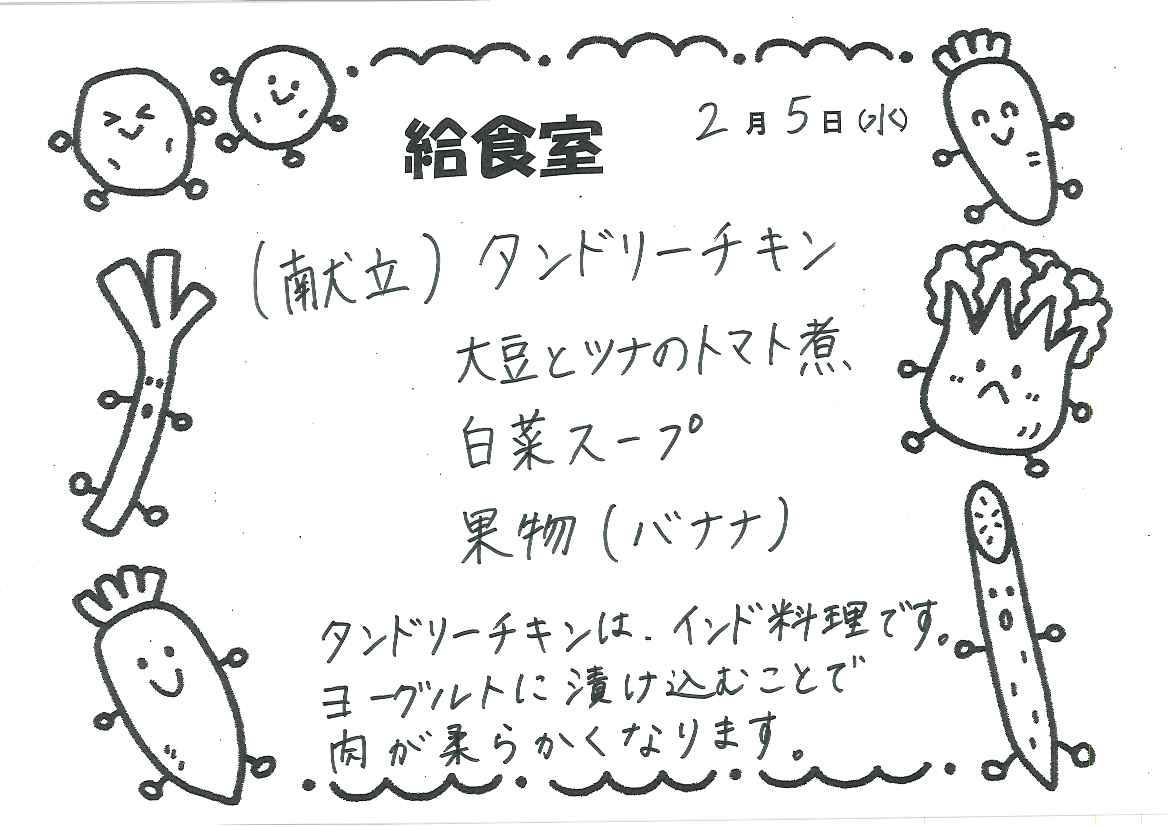 給食室
2月5日(水)
(献立)タンドリーチキン
大豆とツナのトマト煮
白菜スープ
果物(バナナ)
タンドリーチキンは、インド料理です。
ヨーグルトに漬け込むことで
肉が柔らかくなります。